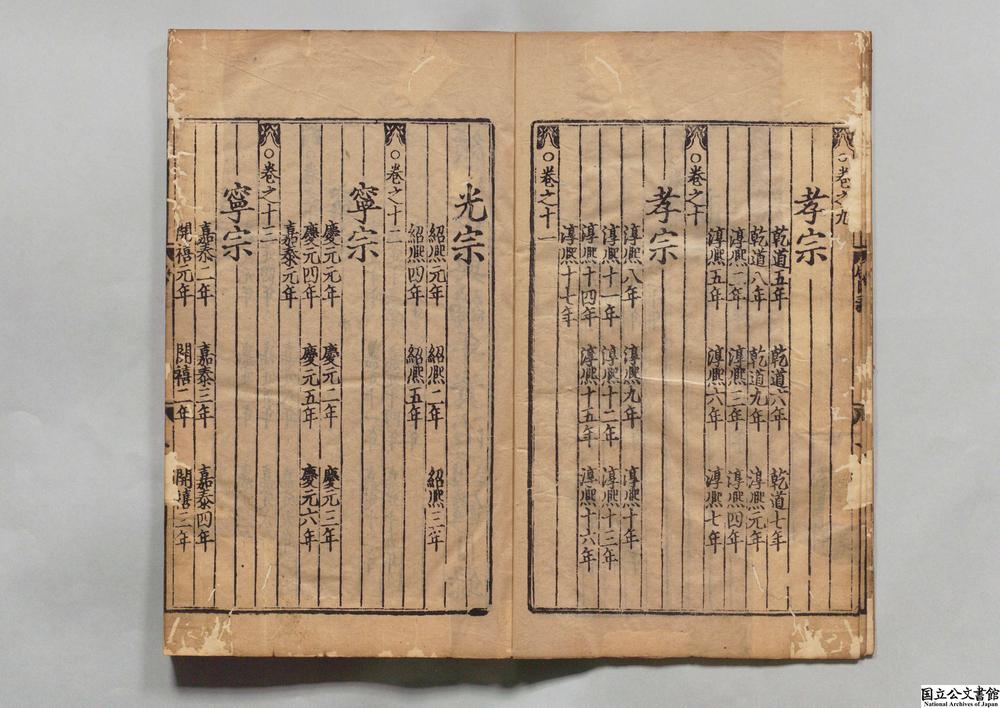 ○卷之九
孝宗
乾道五年 乾道六年 乾道七年
乾道八年 乾道九年 淳熈元年
淳熈二年 淳熈三年 淳熈四年
淳熈五年 淳熈六年 淳熈七年
○卷之十
孝宗
淳熈八年 淳熈九年 淳熈十年
淳熈十一年 淳熈十二年 淳熈十三年
淳熈十四年 淳熈十五年 淳熈十六年
淳熈十七年
○卷之十一
光宗
紹熈元年 紹熈二年 紹熈三年
紹熈四年 紹熈五年
○卷之十二
寧宗
慶元元年 慶元二年 慶元三年
慶元四年 慶元五年 慶元六年
嘉泰元年
○卷之十三
寧宗
嘉泰二年 嘉泰三年 嘉泰四年
開禧元年 開禧二年 開禧三年
国立公文書館
National Archives of Japan